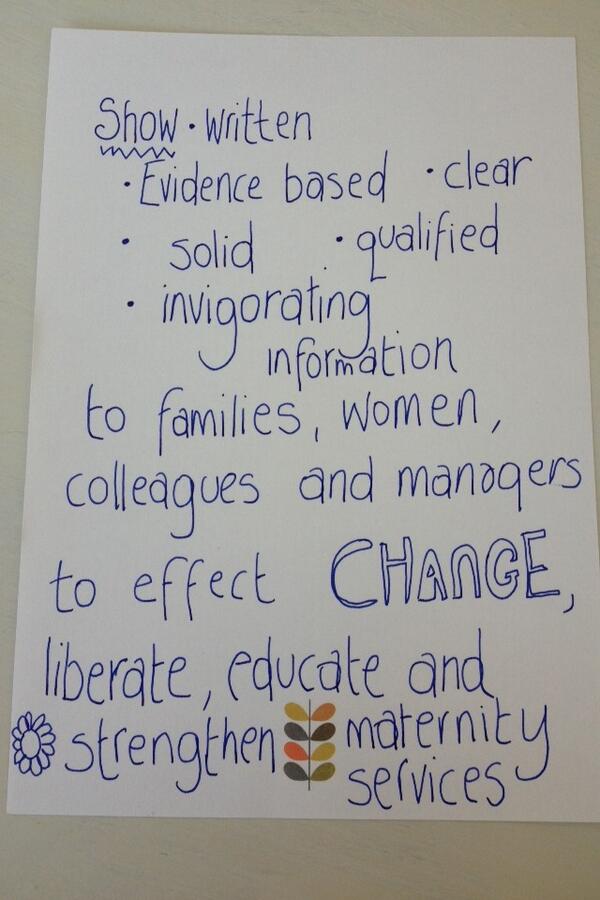 Show • written
• Evidence based • clear
• solid • qualified
• invigorating
information
to families, women,
colleagues and managers
to effect CHANGE,
liberate, educate and
strengthen maternity
services